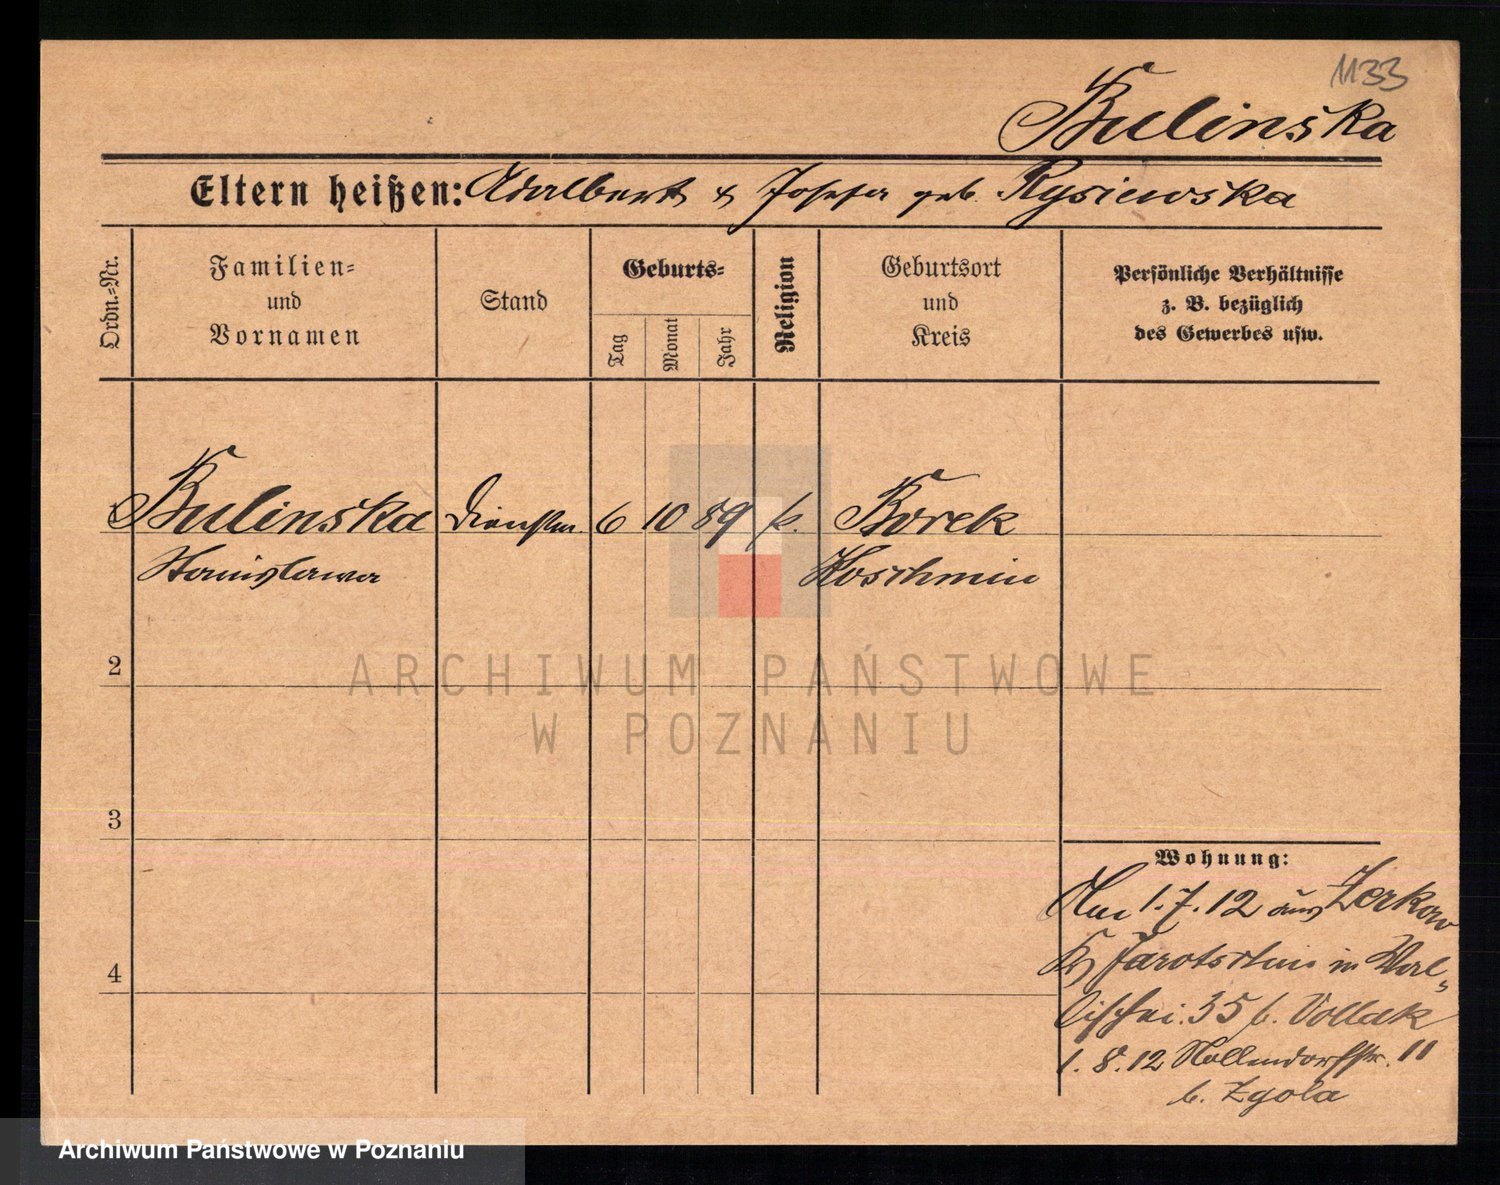 1133
Bulinska
Eltern heißen: Adalbert & Josefa geb. Rysiewska
Ordn.-Nr.
Familien-
und
Vornamen
Stand
Geburts-
Tag
Monat
Jahr
Religion
Geburtsort
und
Kreis
Persönliche Verhältnisse
z. B. bezüglich
des Gewerbes usw.
Bulinska Dienstm. 6 10 89 k. Borek
Stanislawa Koschmin
2
3
4
Wohnung:
Am 1.7.12 aus Zerkow
Jarotschin in Wal-
lischei. 35 b. Vollak
1. 8. 12 Nollendorfstr. 11
b. Zgola
ARCHIWUM PAŃSTWOWE
W POZNANIU
Archiwum Państwowe w Poznaniu